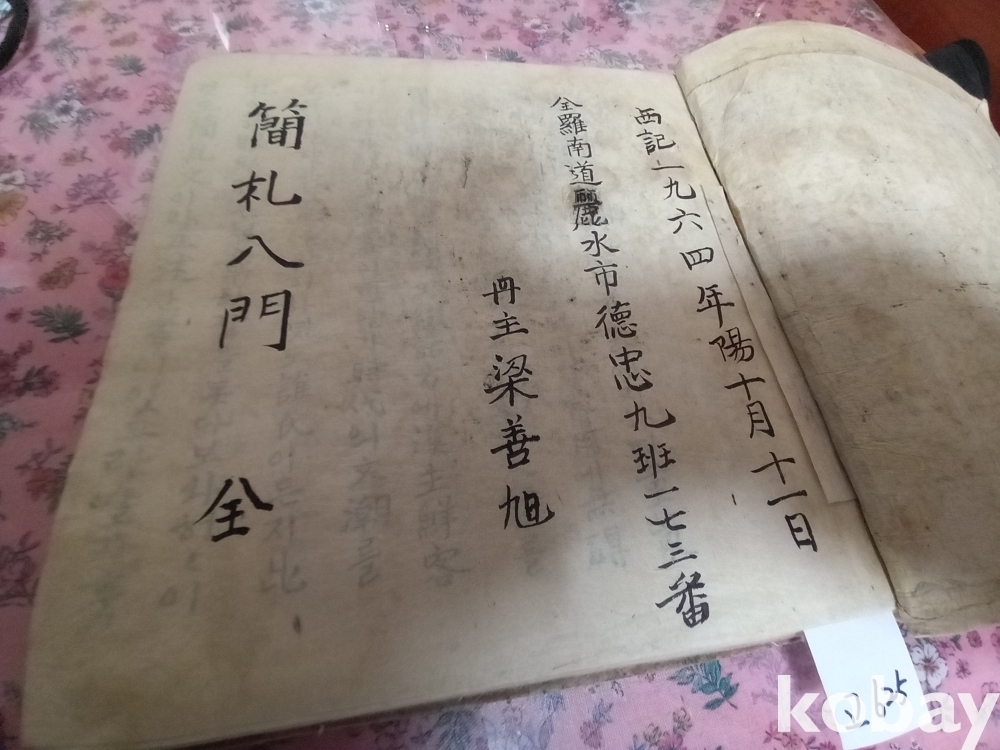 西記一九六四年陽十月十一日
全羅南道麗水市德忠九班一七三番
冊主梁善旭
簡札八門 全
2635
kobay